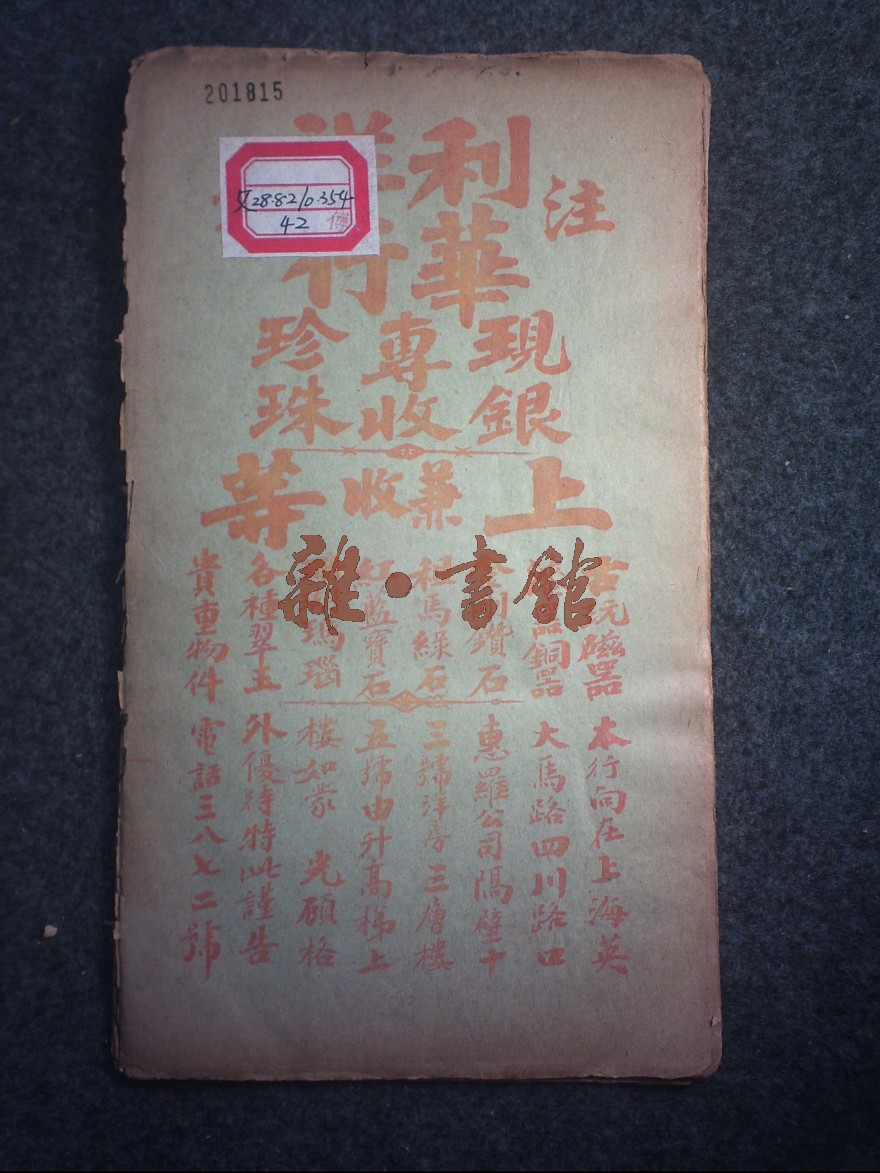 201815
28.82/0.354
42
傅
注
利華
洋行
現銀
專收
珍珠
上
兼收
等
古玩磁器
器銅器
鑽石
馬綠石
紅藍寶石
瑪瑙
各種翠玉
貴重物件
雜·書館
本行向在上海英
大馬路四川路口
惠羅公司隔壁十
三號洋房三層樓
五號由升高梯上
樓如蒙 光顧格
外優待特此謹告
電話三八七二號